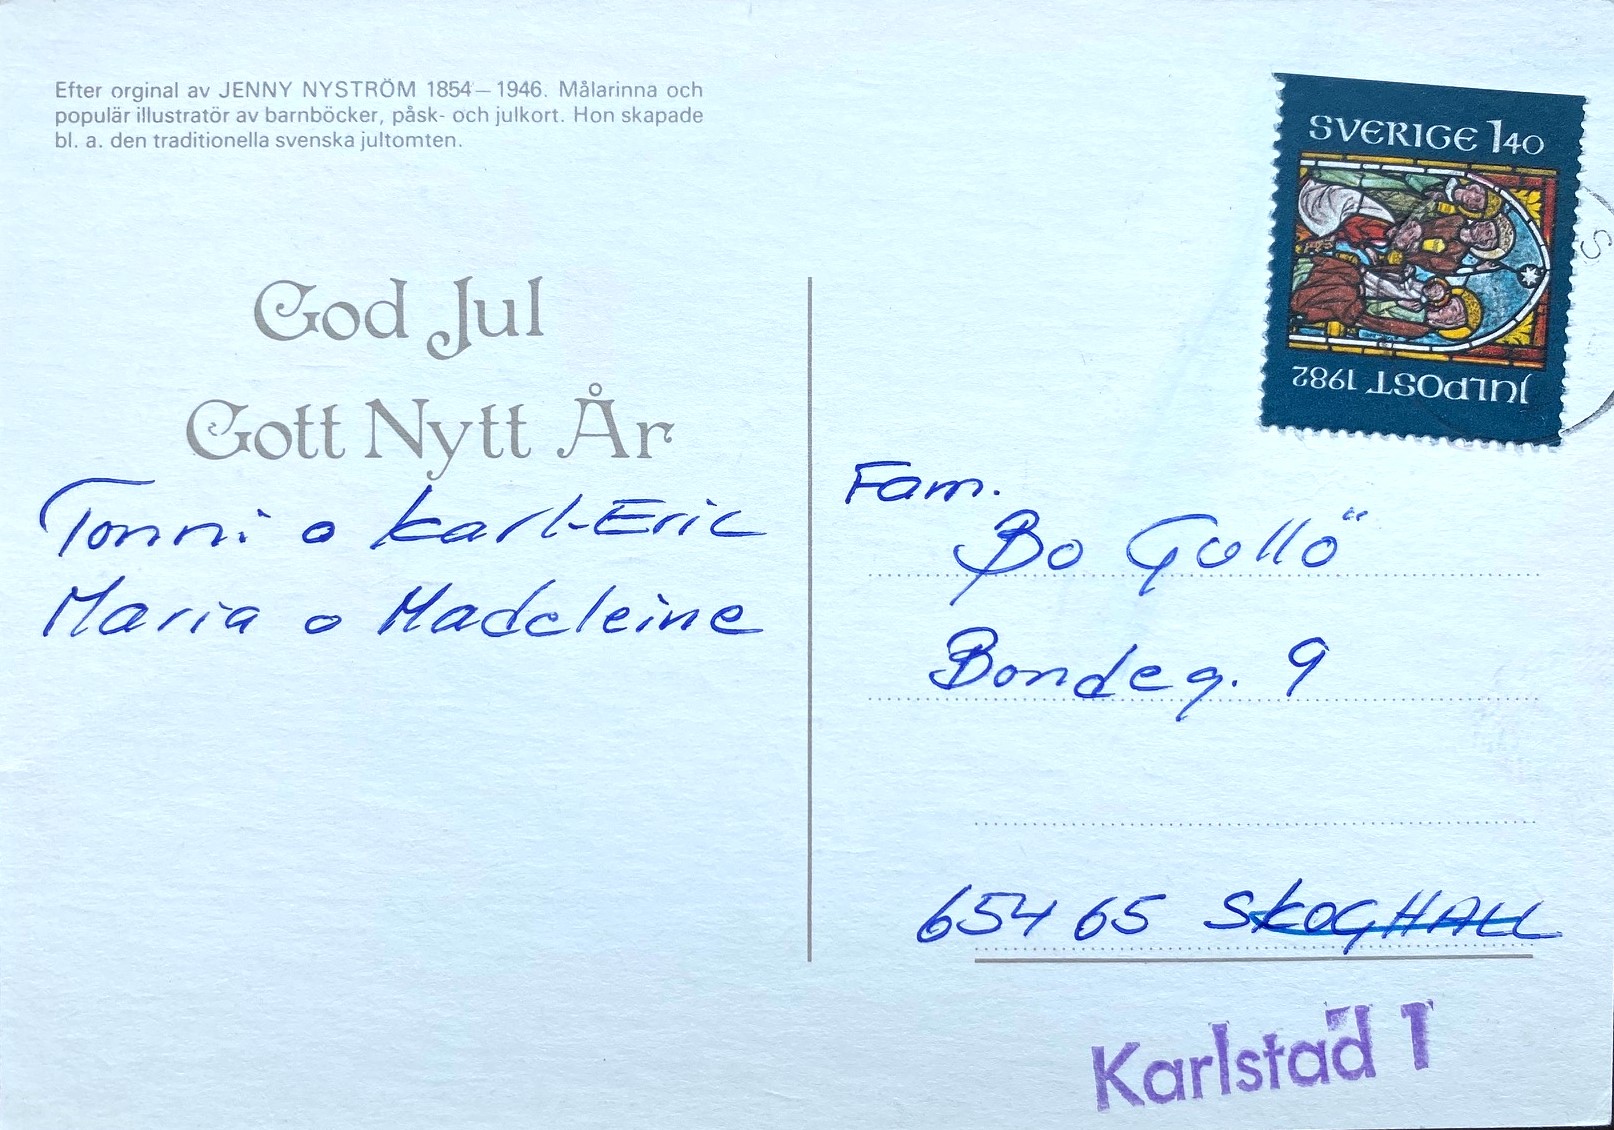 Efter orginal av JENNY NYSTRÖM 1854–1946. Målarinna och
populär illustratör av barnböcker, påsk- och julkort. Hon skapade
bl. a. den traditionella svenska jultomten.
SVERIGE 140
JULPOST 1982
S
God Jul
Gott Nytt År
Tonni o Karl-Eric
Maria o Madeleine
Fam.
Bo Gullö
Bondeg. 9
654 65 SKOGHALL
Karlstad 1